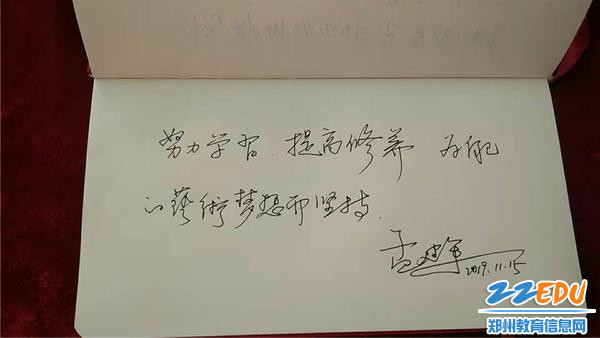 努力学習 提高修养 为自己
的藝術梦想而坚持.
2019.11.15
ZZEDU
郑州教育信息网